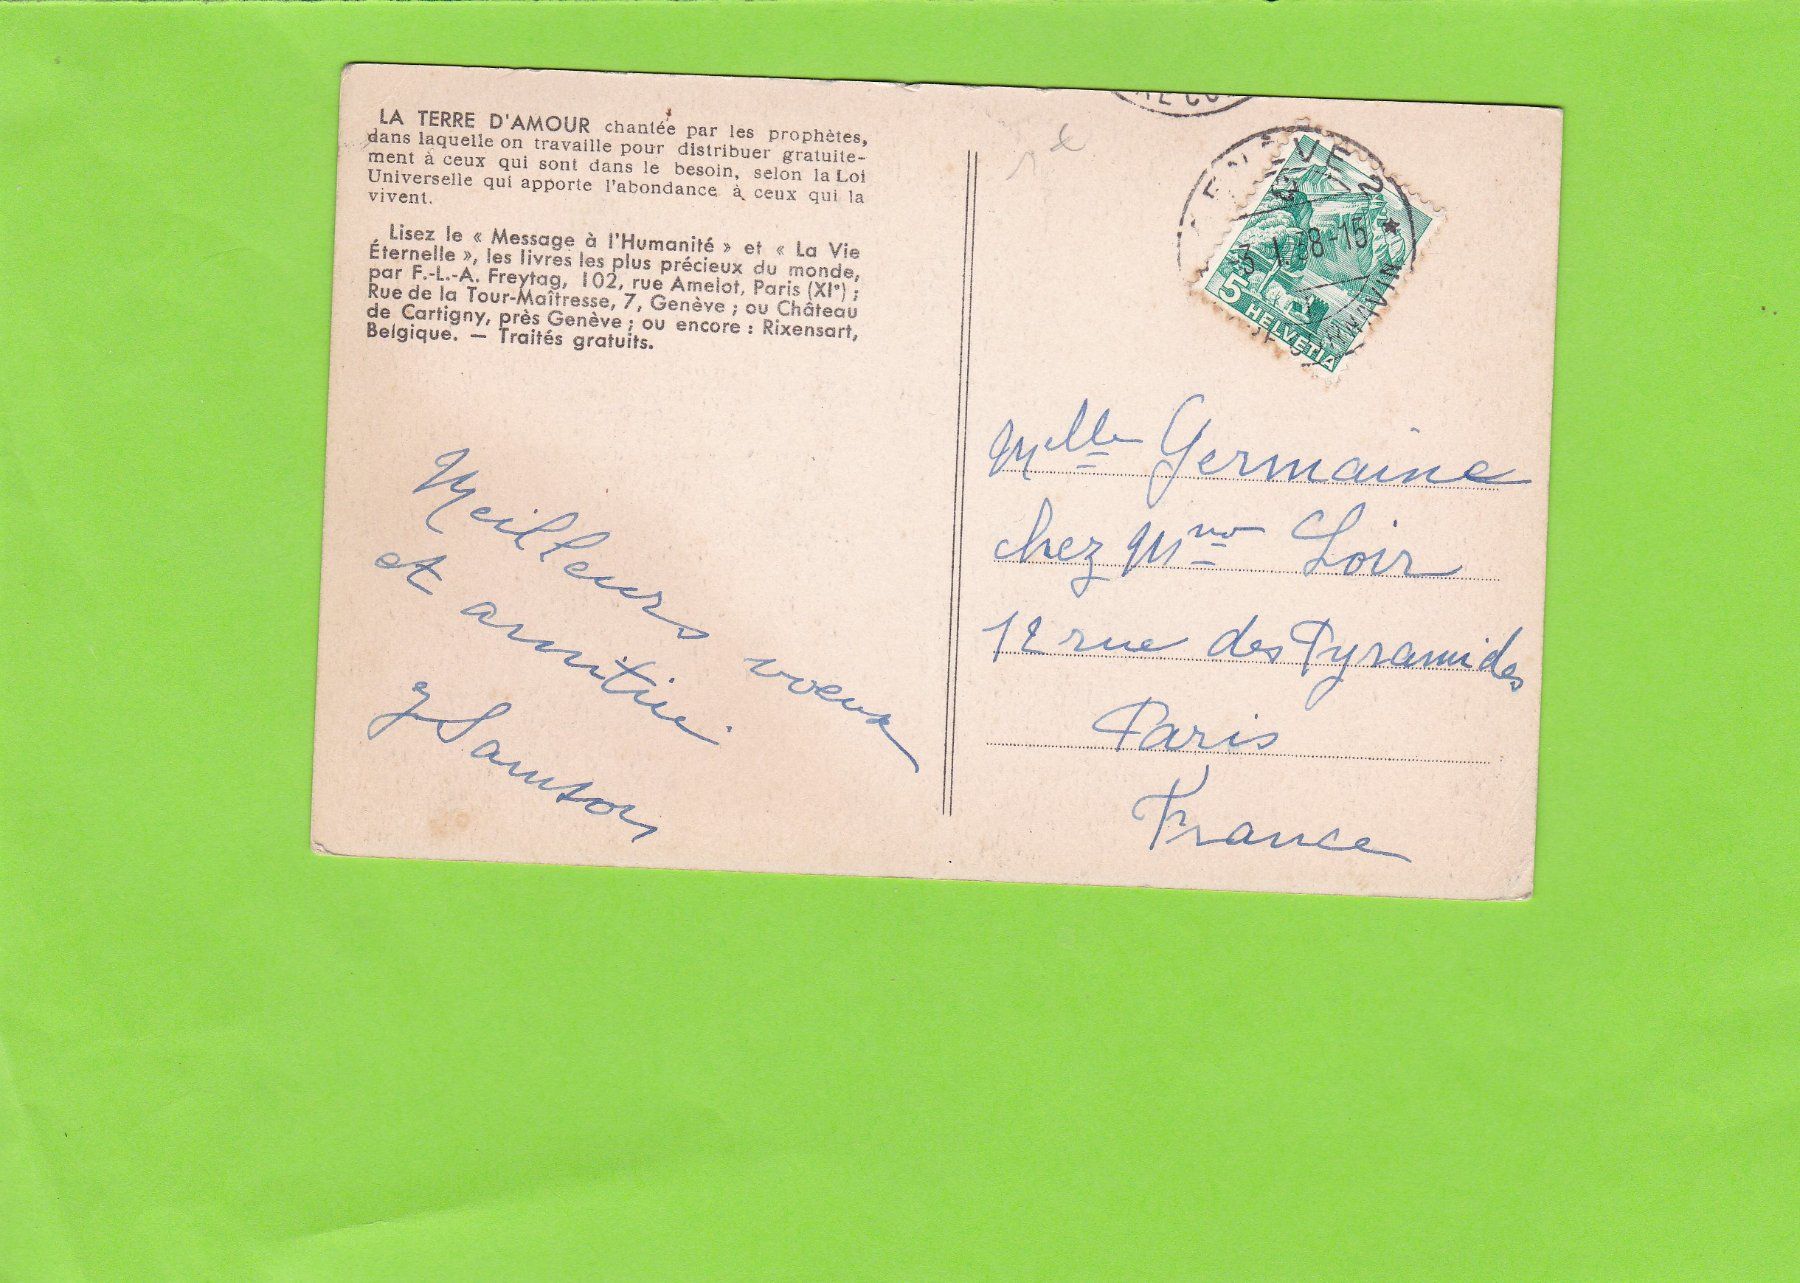 LA TERRE D'AMOUR chantée par les prophètes,
dans laquelle on travaille pour distribuer gratuite-
ment à ceux qui sont dans le besoin, selon la Loi
Universelle qui apporte l'abondance à ceux qui la
vivent.
Lisez le « Message à l'Humanité » et « La Vie
Éternelle », les livres les plus précieux du monde,
par F.-L.-A. Freytag, 102, rue Amelot, Paris (XIᵉ) ;
Rue de la Tour-Maîtresse, 7, Genève ; ou Château
de Cartigny, près Genève ; ou encore : Rixensart,
Belgique. — Traités gratuits.
Meilleurs voeux
et amitié.
Samson
GENÈVE 2
3. I. 38-15
5 HELVETIA
Mlle Germaine
chez Mme Loir
12 rue des Pyramides
Paris
France